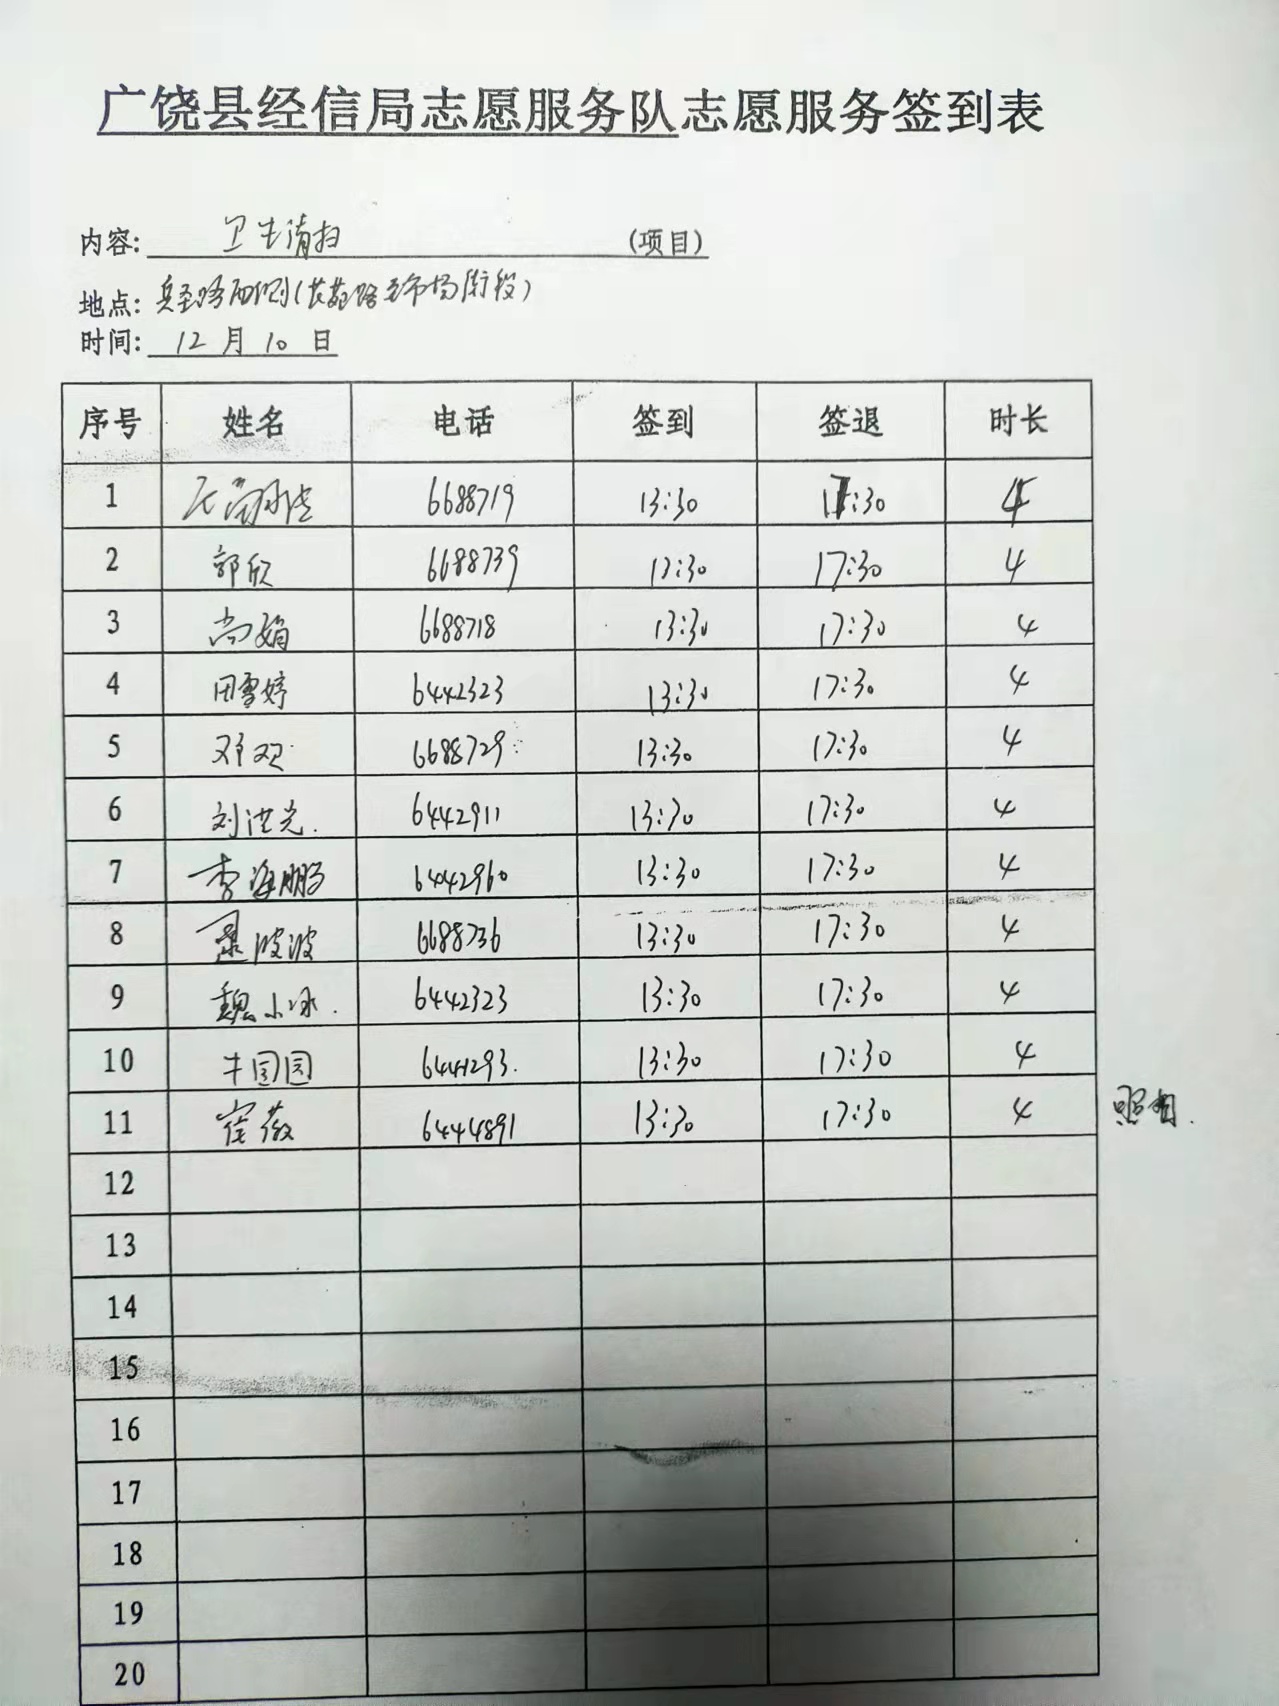 广饶县经信局志愿服务队志愿服务签到表
内容: 卫生清扫 (项目)
地点: 兵圣路西侧(长苑路至市场街段)
时间: 12 月 10 日
序号 姓名 电话 签到 签退 时长
1 6688719 13:30 17:30 4
2 郭欣 6688739 13:30 17:30 4
3 尚娟 6688718 13:30 17:30 4
4 田雪婷 6442323 13:30 17:30 4
5 邓观 6688729 13:30 17:30 4
6 刘洪光 6442911 13:30 17:30 4
7 李海鹏 6442960 13:30 17:30 4
8 聂波波 6688736 13:30 17:30 4
9 魏小冰 6442323 13:30 17:30 4
10 牛园园 6441293 13:30 17:30 4
11 崔薇 6444891 13:30 17:30 4 照相.
12
13
14
15
16
17
18
19
20